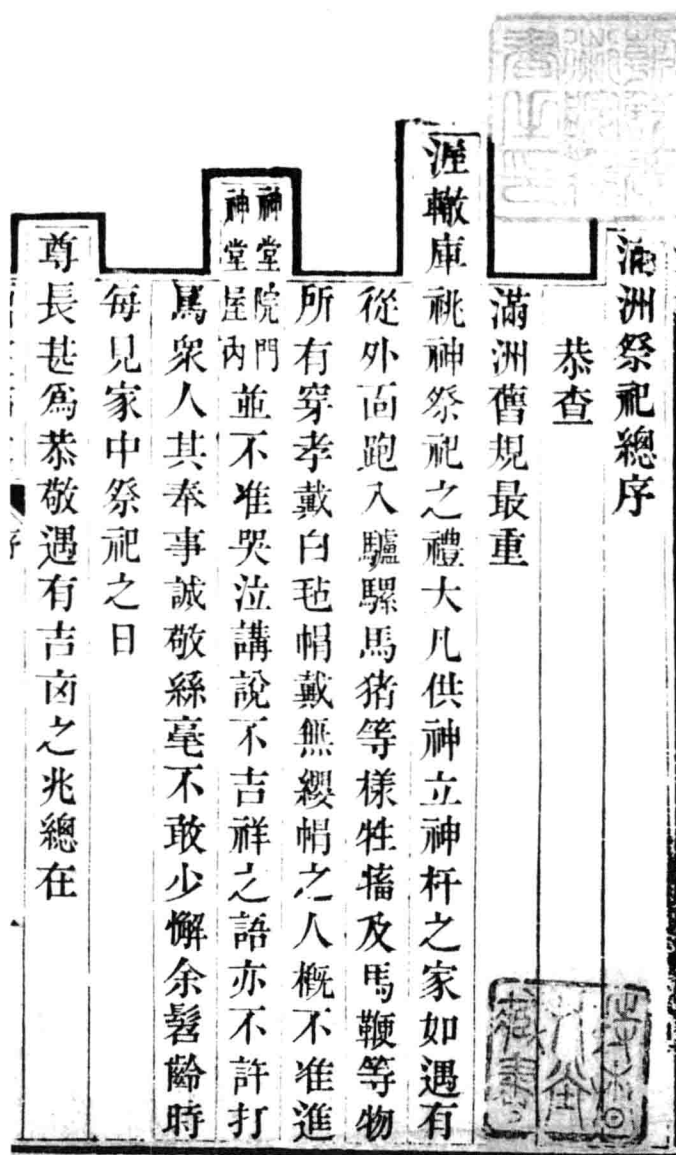 滿洲祭祀總序
恭查
滿洲舊規最重
渥轍庫祧神祭祀之禮大凡供神立神杆之家如遇有
從外面跑入驢騾馬猪等樣牲畜及馬鞭等物
所有穿孝戴白毡帽戴無纓帽之人概不准進
神堂院門
神堂屋內並不准哭泣講說不吉祥之語亦不許打
罵衆人其奉事誠敬絲毫不敢少懈余髫齡時
每見家中祭祀之日
尊長甚爲恭敬遇有吉凶之兆總在
序